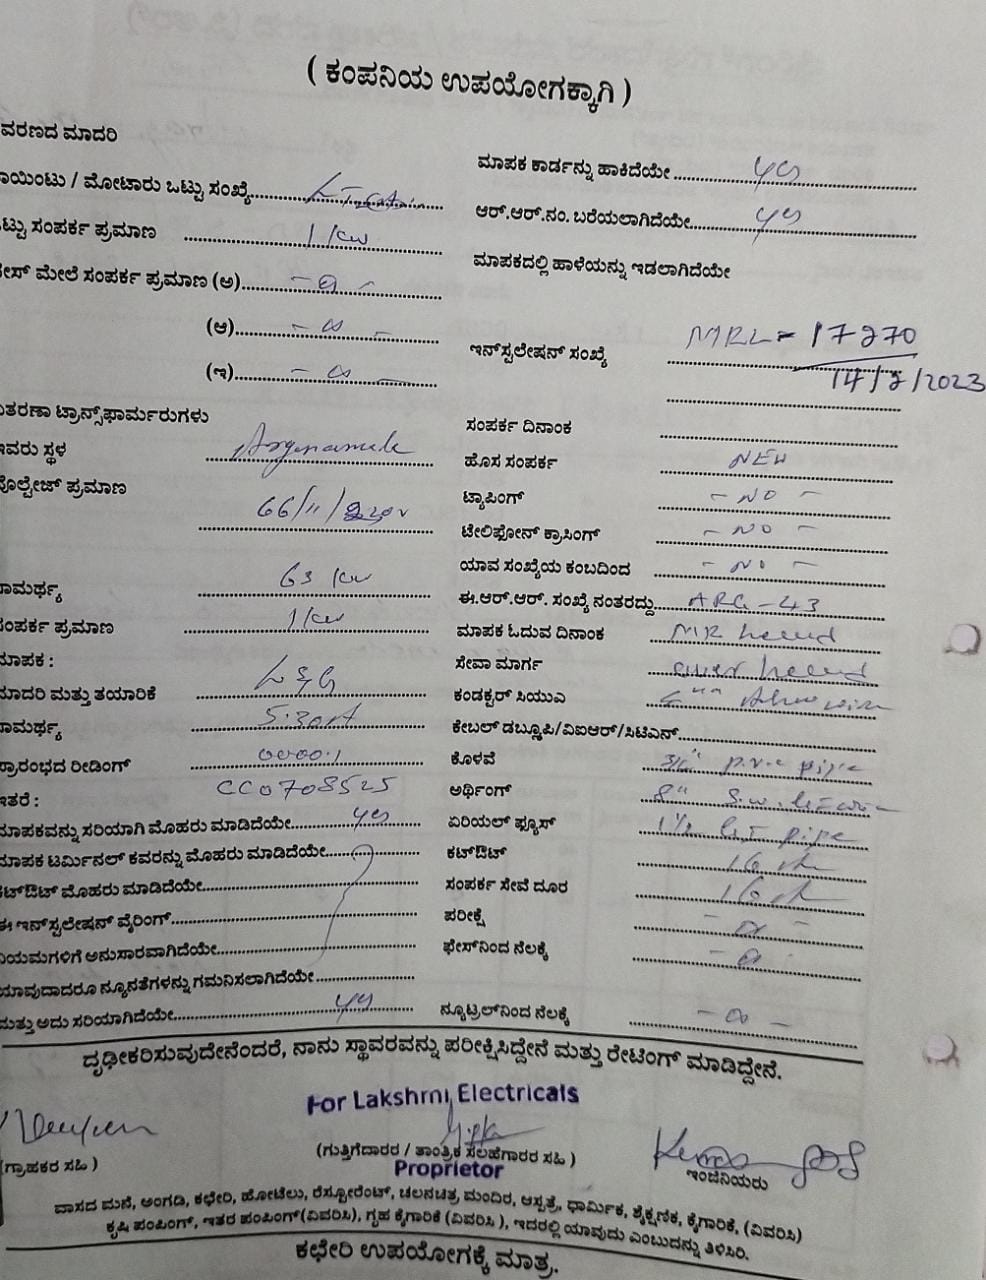 ( ಕಂಪನಿಯ ಉಪಯೋಗಕ್ಕಾಗಿ )
ವರಣದ ಮಾದರಿ
ಮಾಪಕ ಕಾರ್ಡನ್ನು ಹಾಕಿದೆಯೇ yes
ಾಯಿಂಟು / ಮೋಟಾರು ಒಟ್ಟು ಸಂಖ್ಯೆ
ಆರ್.ಆರ್.ನಂ. ಬರೆಯಲಾಗಿದೆಯೇ yes
ಟ್ಟು ಸಂಪರ್ಕ ಪ್ರಮಾಣ 1 KW
ಮಾಪಕದಲ್ಲಿ ಹಾಳೆಯನ್ನು ಇಡಲಾಗಿದೆಯೇ
ೇಸ್ ಮೇಲೆ ಸಂಪರ್ಕ ಪ್ರಮಾಣ (ಅ)
(ಆ)
ಇನ್‌ಸ್ಟಲೇಷನ್ ಸಂಖ್ಯೆ MRL = 17270
14/2/2023
(ಇ)
ಿತರಣಾ ಟ್ರಾನ್ಸ್‌ಫಾರ್ಮರುಗಳು
ಸಂಪರ್ಕ ದಿನಾಂಕ
ಇವರು ಸ್ಥಳ
ಹೊಸ ಸಂಪರ್ಕ NEW
ವೋಲ್ಟೇಜ್ ಪ್ರಮಾಣ 66/11/
ಟ್ಯಾಪಿಂಗ್ - NO -
ಟೇಲಿಫೋನ್ ಕ್ರಾಸಿಂಗ್ - NO -
ಯಾವ ಸಂಖ್ಯೆಯ ಕಂಬದಿಂದ - NO -
ಾಮರ್ಥ್ಯ 63 KW
ಈ.ಆರ್.ಆರ್. ಸಂಖ್ಯೆ ನಂತರದ್ದು ARG-43
ಸಂಪರ್ಕ ಪ್ರಮಾಣ 1 KW
ಮಾಪಕ ಓದುವ ದಿನಾಂಕ MR
ಮಾಪಕ :
ಸೇವಾ ಮಾರ್ಗ over head
ಮಾದರಿ ಮತ್ತು ತಯಾರಿಕೆ L & G
ಕಂಡಕ್ಟರ್ ಸಿಯುವಿ
ಾಮರ್ಥ್ಯ 5-30A
ಕೇಬಲ್ ಡಬ್ಲ್ಯೂಪಿ/ವಿಐಆರ್/ಸಿಟಿಎನ್
ಪ್ರಾರಂಭದ ರೀಡಿಂಗ್ 0000.1
ಕೊಳವೆ 3/4" p.v.c pipe
ಇತರೆ : CC0708525
ಅರ್ಥಿಂಗ್ 8" S.W.
ಮಾಪಕವನ್ನು ಸರಿಯಾಗಿ ಮೊಹರು ಮಾಡಿದೆಯೇ yes
ಏರಿಯಲ್ ಫ್ಯೂಸ್ 1½ G.I pipe
ಮಾಪಕ ಟರ್ಮಿನಲ್ ಕವರನ್ನು ಮೊಹರು ಮಾಡಿದೆಯೇ
ಕಟ್‌ಔಟ್ 16
ಕಟ್‌ಔಟ್ ಮೊಹರು ಮಾಡಿದೆಯೇ
ಸಂಪರ್ಕ ಸೇವೆ ದೂರ 16
ಈ ಇನ್‌ಸ್ಟಲೇಷನ್ ವೈರಿಂಗ್
ಪರೀಕ್ಷೆ
ನಿಯಮಗಳಿಗೆ ಅನುಸಾರವಾಗಿದೆಯೇ
ಫೇಸ್‌ನಿಂದ ನೆಲಕ್ಕೆ
ಯಾವುದಾದರೂ ನ್ಯೂನತೆಗಳನ್ನು ಗಮನಿಸಲಾಗಿದೆಯೇ
ಮತ್ತು ಅದು ಸರಿಯಾಗಿದೆಯೇ yes
ನ್ಯೂಟ್ರಲ್‌ನಿಂದ ನೆಲಕ್ಕೆ
ದೃಢೀಕರಿಸುವುದೇನೆಂದರೆ, ನಾನು ಸ್ಥಾವರವನ್ನು ಪರೀಕ್ಷಿಸಿದ್ದೇನೆ ಮತ್ತು ರೇಟಿಂಗ್ ಮಾಡಿದ್ದೇನೆ.
For Lakshmi Electricals
(ಗ್ರಾಹಕರ ಸಹಿ )
(ಗುತ್ತಿಗೆದಾರರ / ತಾಂತ್ರಿಕ ಸಲಹೆಗಾರರ ಸಹಿ )
ಇಂಜಿನಿಯರು
Proprietor
ವಾಸದ ಮನೆ, ಅಂಗಡಿ, ಕಛೇರಿ, ಹೋಟೆಲು, ರೆಸ್ಟೋರೆಂಟ್, ಚಲನಚಿತ್ರ ಮಂದಿರ, ಆಸ್ಪತ್ರೆ, ಧಾರ್ಮಿಕ, ಶೈಕ್ಷಣಿಕ, ಕೈಗಾರಿಕೆ, (ವಿವರಿಸಿ)
ಕೃಷಿ ಪಂಪಿಂಗ್, ಇತರ ಪಂಪಿಂಗ್(ವಿವರಿಸಿ), ಗೃಹ ಕೈಗಾರಿಕೆ (ವಿವರಿಸಿ ), ಇದರಲ್ಲಿ ಯಾವುದು ಎಂಬುದನ್ನು ತಿಳಿಸಿರಿ.
ಕಛೇರಿ ಉಪಯೋಗಕ್ಕೆ ಮಾತ್ರ.